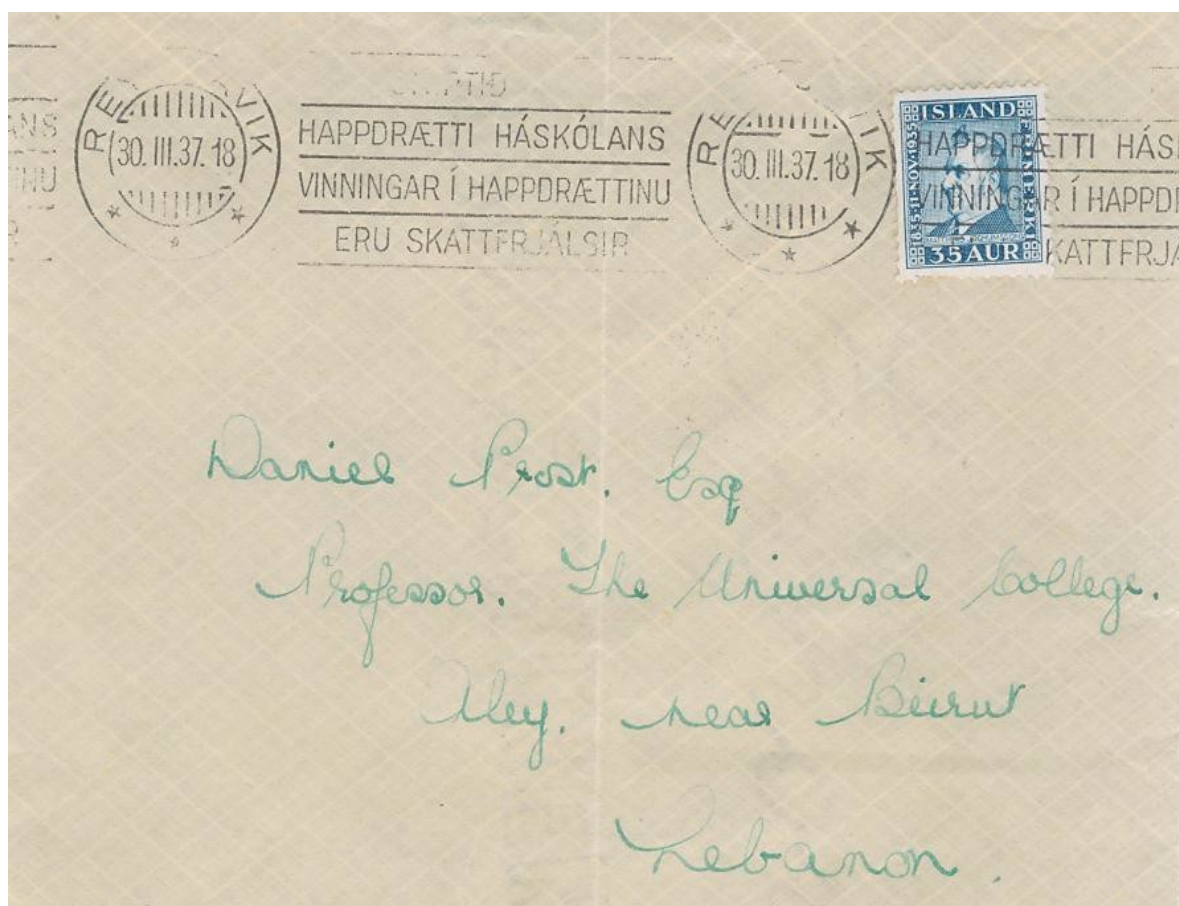 REYKJAVIK
30. III. 37. 18
HAPPDRÆTTI HÁSKÓLANS
VINNINGAR Í HAPPDRÆTTINU
ERU SKATTFRJÁLSIR
30. III. 37. 18
ISLAND
FRIMERKI
1835·11·NOV·1935
35 AUR
HAPPDRÆTTI HÁS
VINNINGAR Í HAPPD
SKATTFRJÁ
Daniel Prost. Esq
Professor. The Universal College.
Aley. near Beirut
Lebanon.